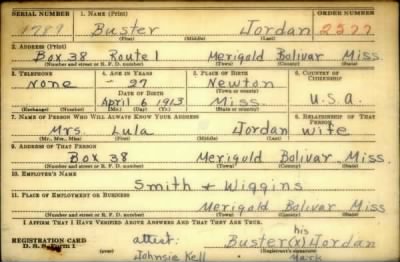 SERIAL NUMBER 1. NAME (Print) ORDER NUMBER
1789 Buster Jordan 2577
(First) (Middle) (Last)
2. ADDRESS (Print)
Box 38 Route 1 Merigold Bolivar Miss.
(Number and street or R. F. D. number) (Town) (County) (State)
3. TELEPHONE 4. AGE IN YEARS 5. PLACE OF BIRTH 6. COUNTRY OF CITIZENSHIP
None 27 Newton
DATE OF BIRTH (Town or county)
April 6 1913 Miss. U.S.A.
(Exchange) (Number) (Mo.) (Day) (Yr.) (State or country)
7. NAME OF PERSON WHO WILL ALWAYS KNOW YOUR ADDRESS 8. RELATIONSHIP OF THAT PERSON
Mrs. Lula Jordan wife
(Mr., Mrs., Miss) (First) (Middle) (Last)
9. ADDRESS OF THAT PERSON
Box 38 Merigold Bolivar Miss.
(Number and street or R. F. D. number) (Town) (County) (State)
10. EMPLOYER'S NAME
Smith + Wiggins
11. PLACE OF EMPLOYMENT OR BUSINESS
Merigold Bolivar Miss
(Number and street or R. F. D. number) (Town) (County) (State)
I AFFIRM THAT I HAVE VERIFIED ABOVE ANSWERS AND THAT THEY ARE TRUE.
his
REGISTRATION CARD attest: Buster (x) Jordan
D. S. S. Form 1 (Registrant's signature)
Johnsie Kell mark